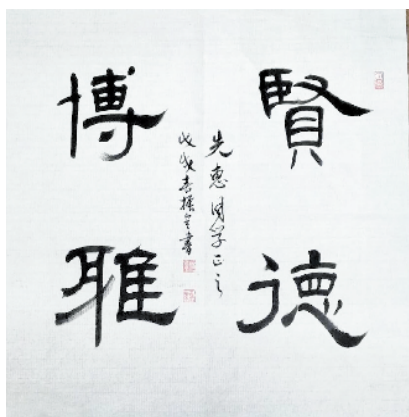 賢德
博雅
先惠同学正之
戊戌春振金書